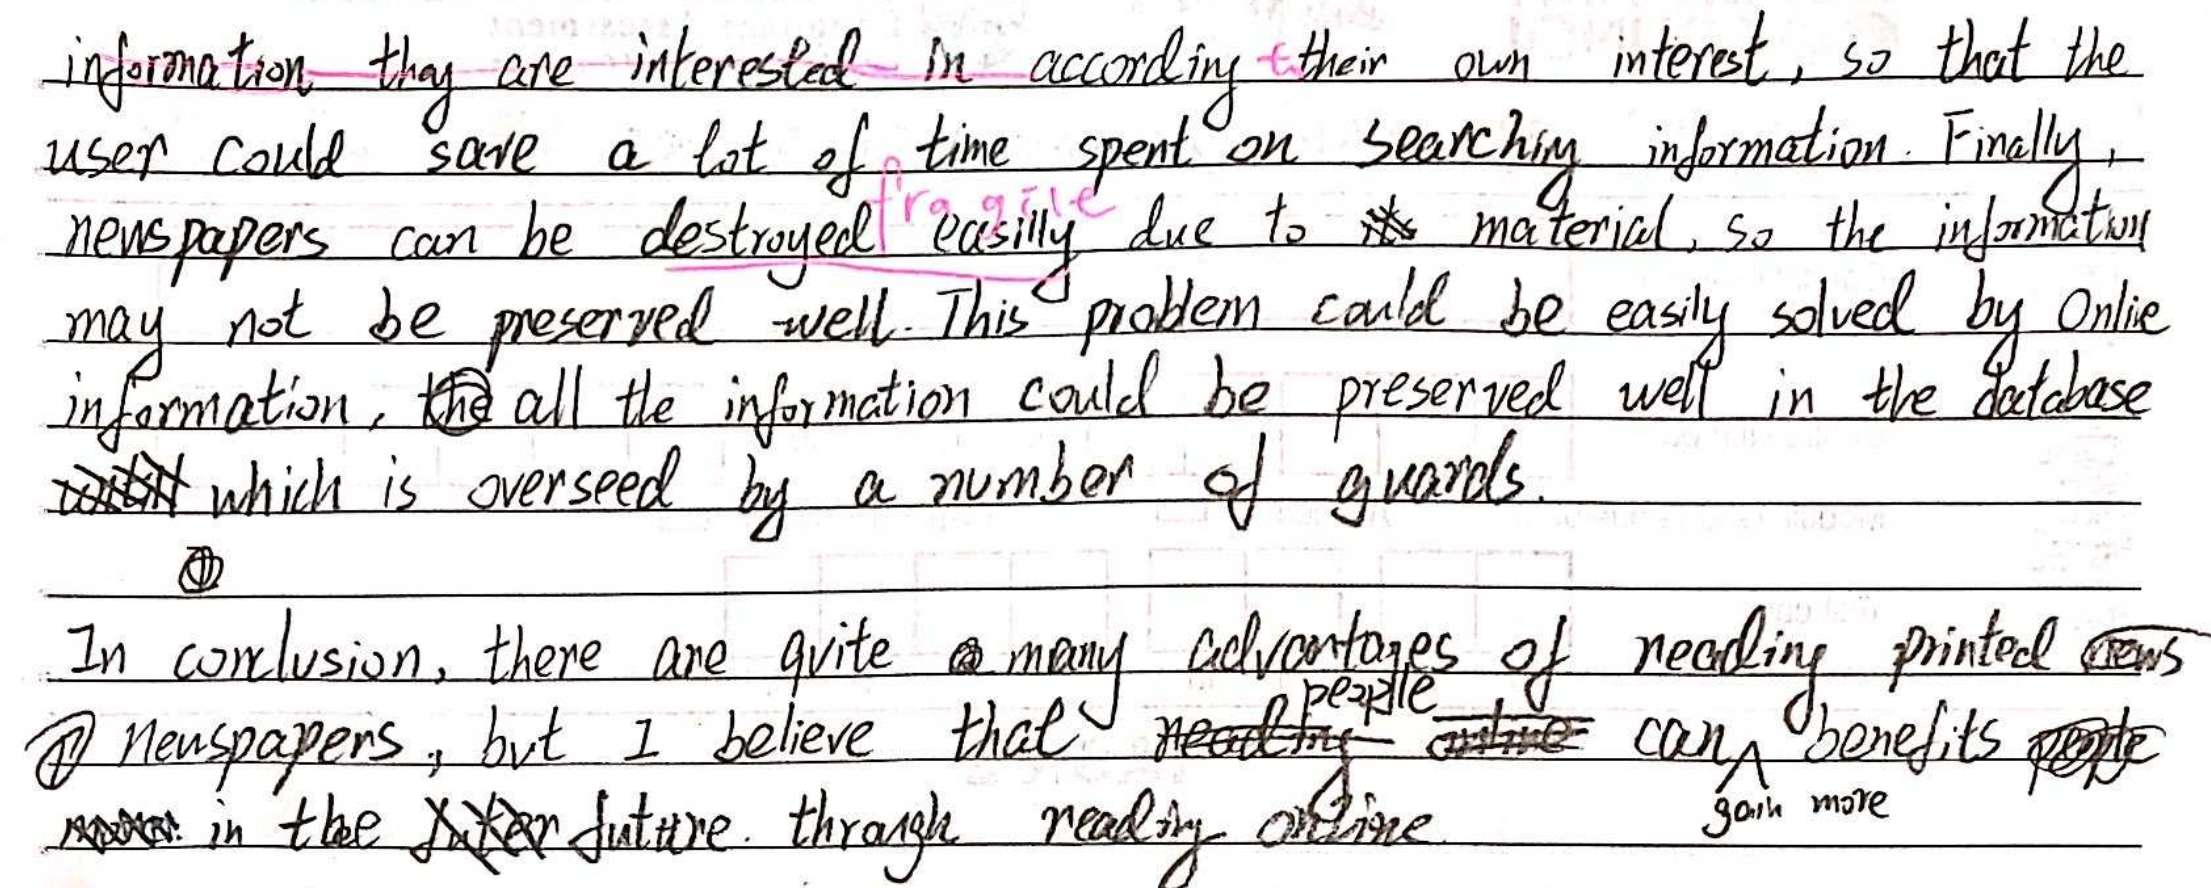 information thay are interested in according t their own interest, so that the
user could save a lot of time spent on searching information. Finally,
fragile
newspapers can be destroyed easilly due to its material, so the information
may not be preserved well. This problem could be easily solved by Onlie
information, the all the information could be preserved well in the database
which is overseed by a number of guards.
In conclusion, there are quite many advantages of reading printed news
people
newspapers, but I believe that reading online can benefits people
gain more
in the future. through reading online.